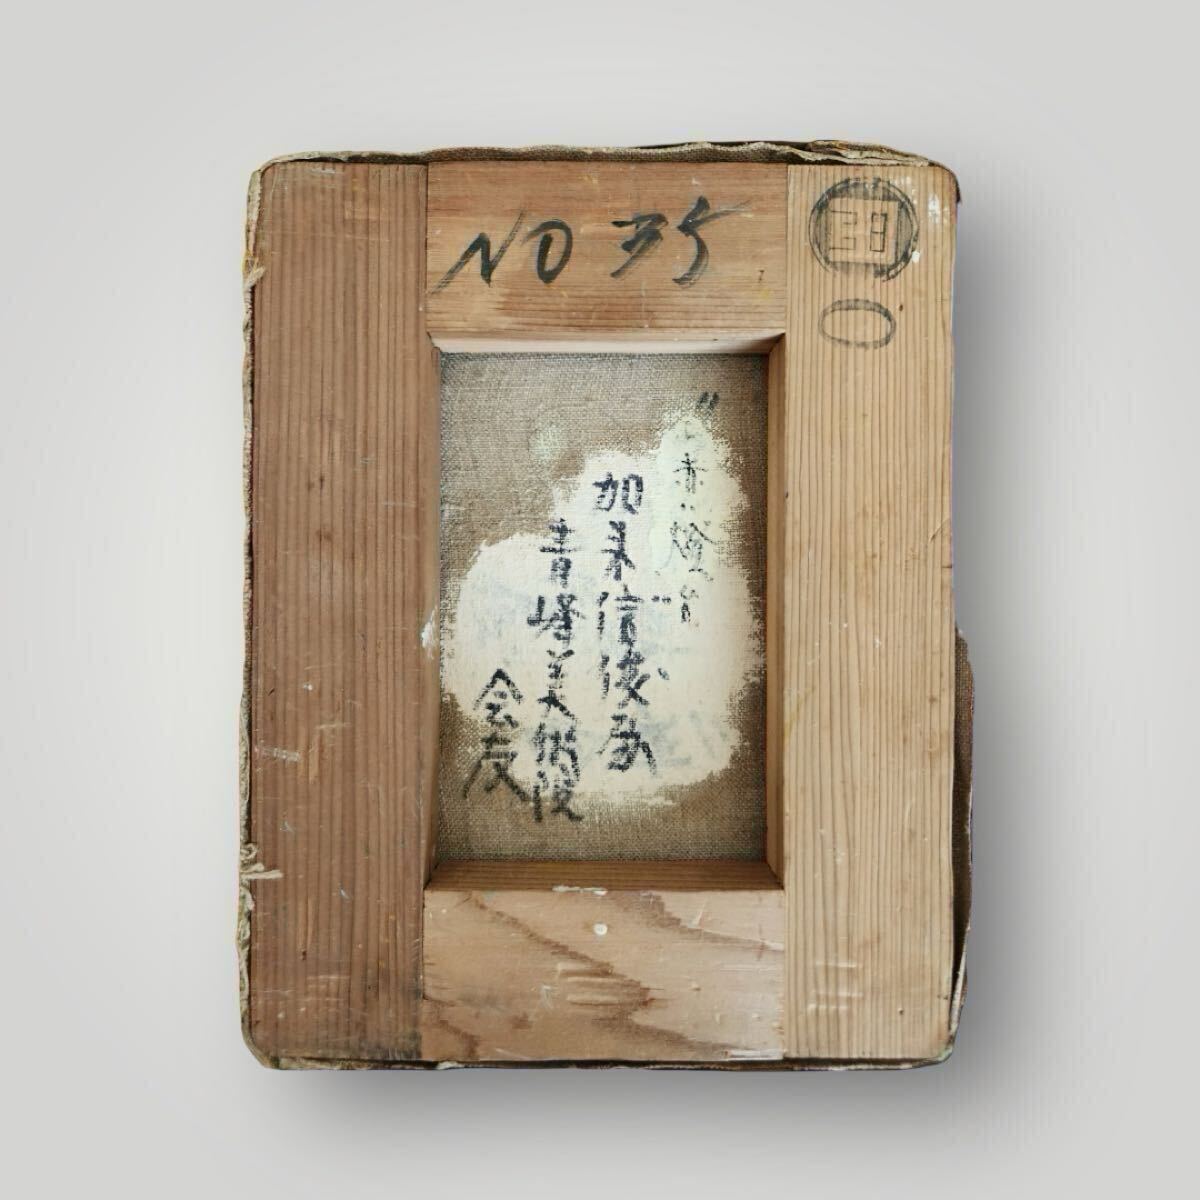 NO 35
"赤い燈台"
加来信俊画
青峰美術院
会友